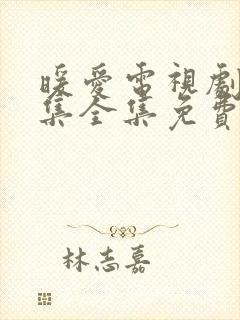 暖愛電視劇
集全集免費
林志嘉